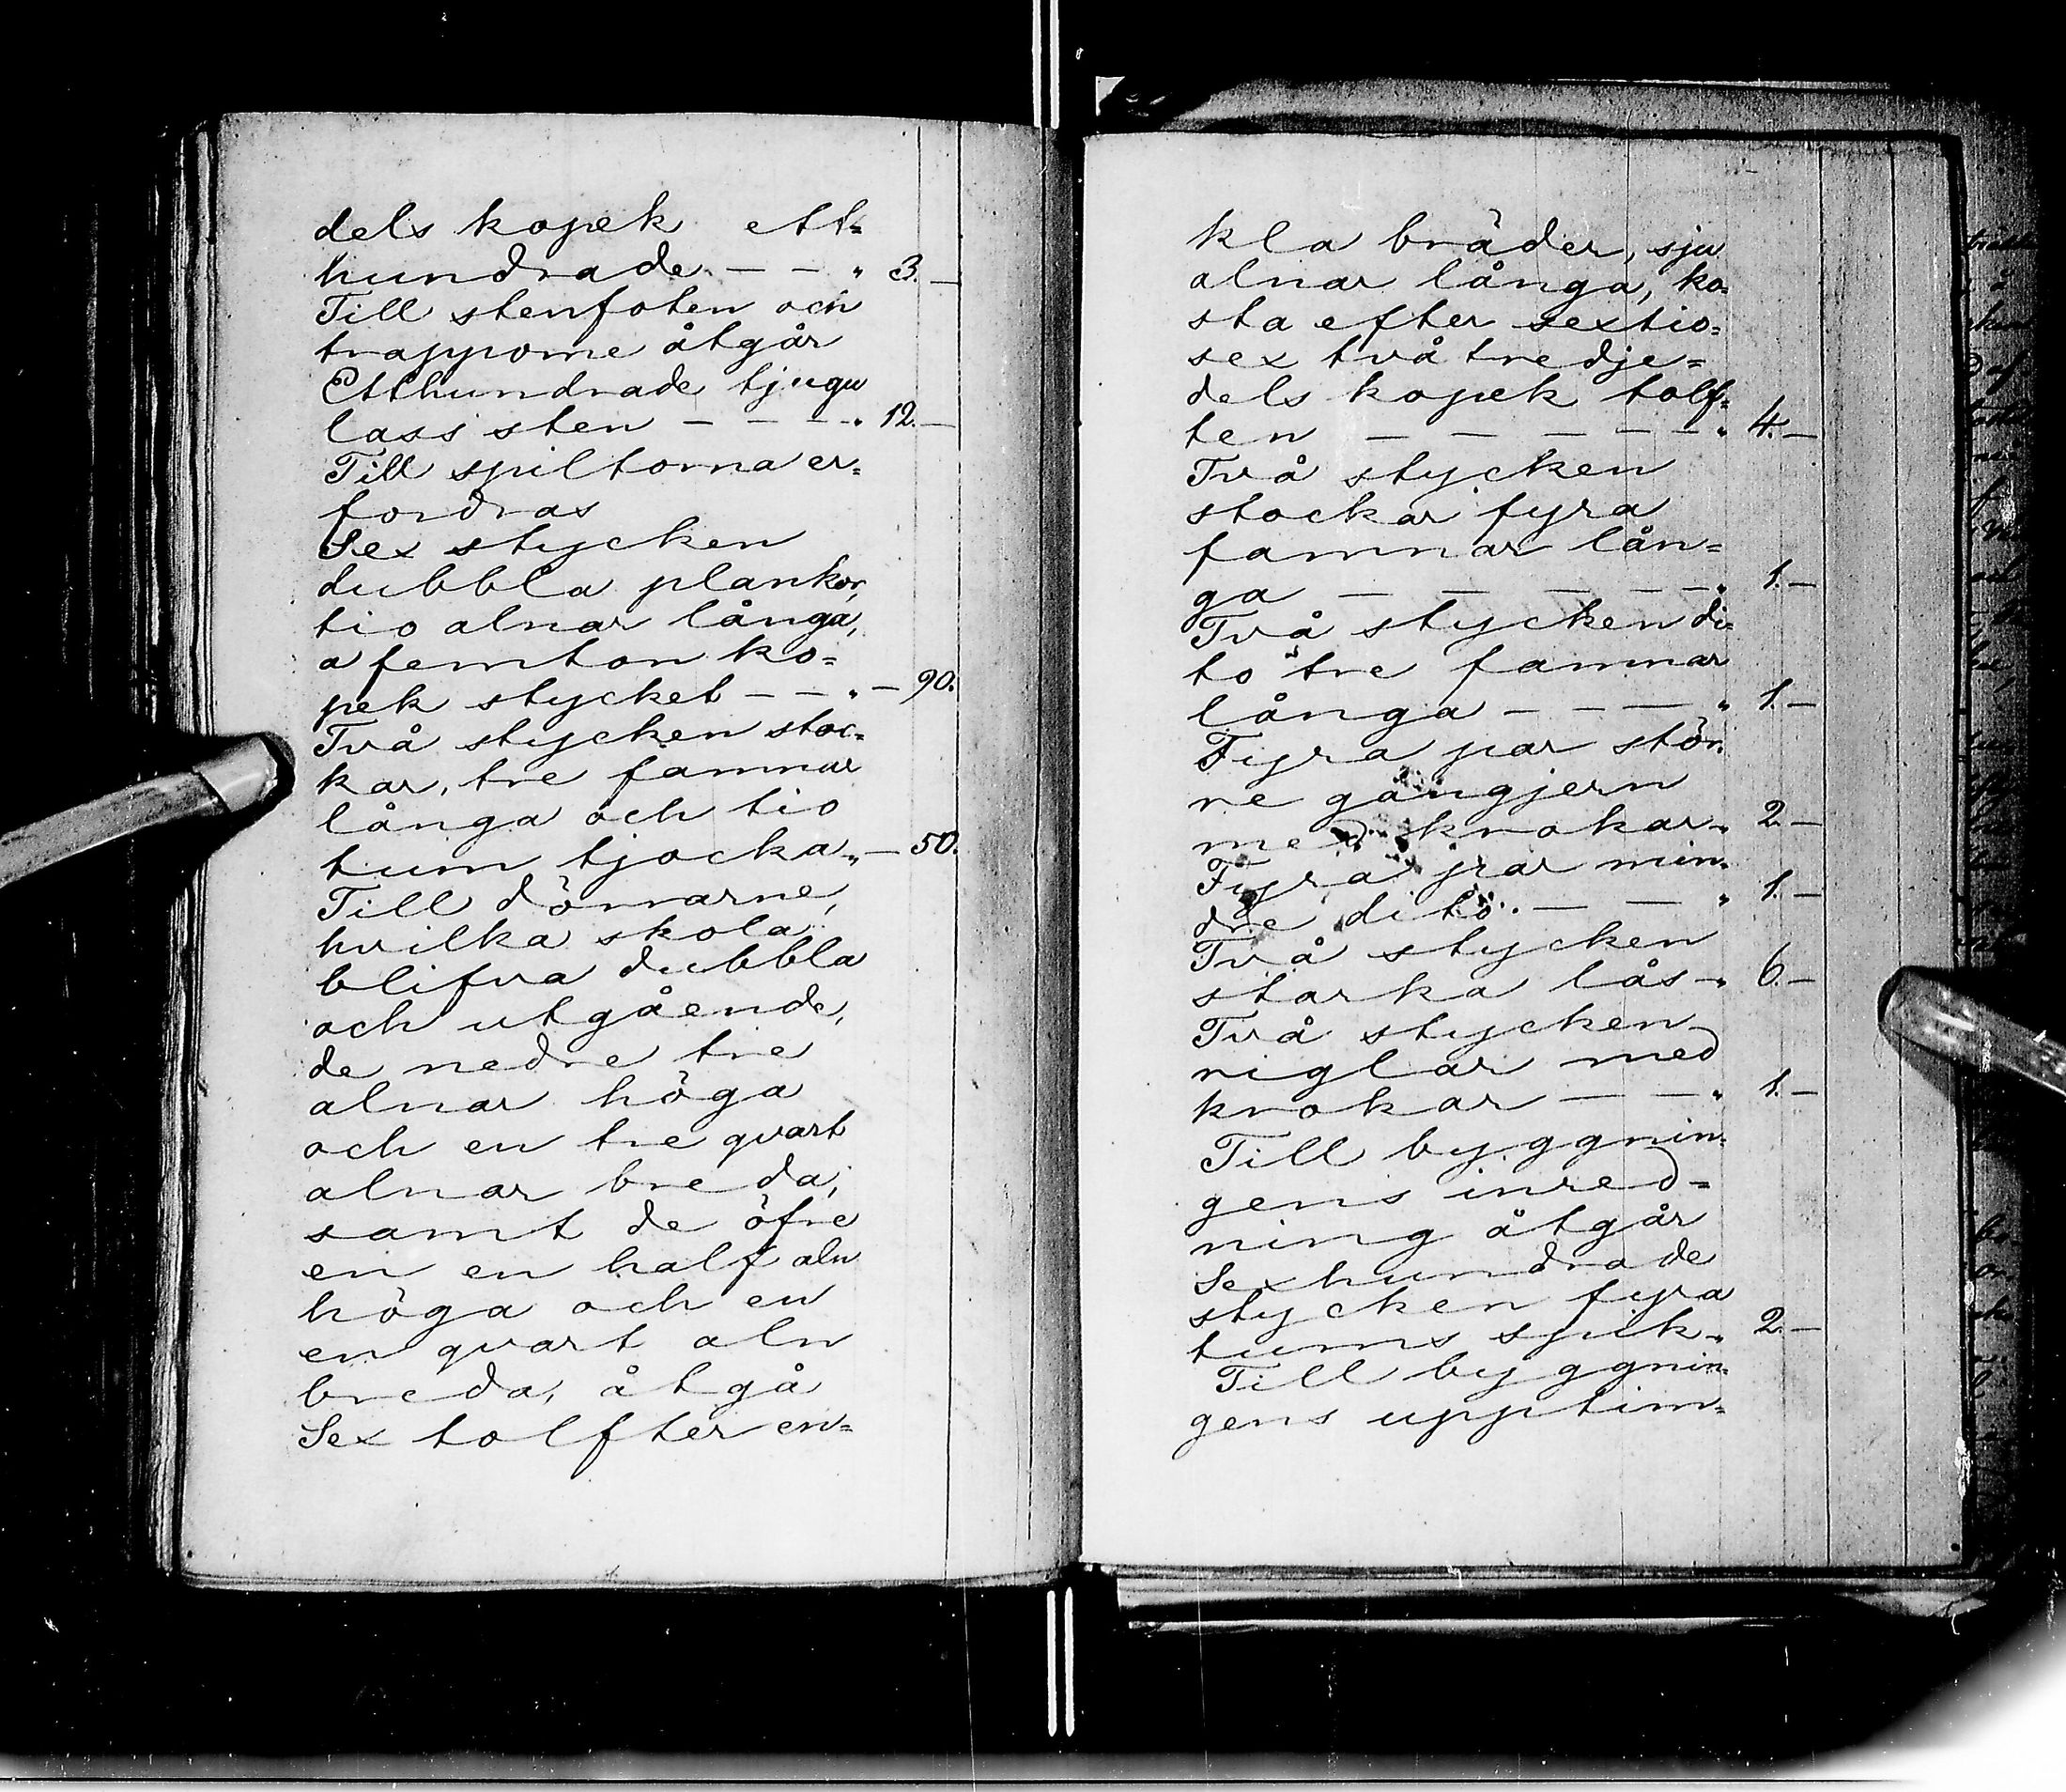 dels kopek ett-
hundrade — — „ 3. —
Till stenfoten och
trapporne åtgår
Etthundrade tjugu
lass sten — — — „ 12. —
Till spiltorna er-
fordras
Sex stycken
dubbla plankor,
tio alnar långa,
a femton ko-
pek stycket — — „ — 90.
Två stycken stoc-
kar, tre famnar
långa och tio
tum tjocka „ — 50.
Till dörrarne,
hvilka skola
blifva dubbla
och utgående,
de nedre tre
alnar höga
och en tre qvart
alnar breda,
samt de öfre
en en half aln
höga och en
en qvart aln
breda, åtgå
Sex tolfter en-
kla bräder, sju
alnar långa, ko-
sta efter sextio-
sex två tredje-
dels kopek tolf-
ten — — — — — „ 4. —
Två stycken
stockar fyra
famnar lån-
ga — — — — — „ 1. —
Två stycken di-
to tre famnar
långa — — — „ 1. —
Fyra par stör-
re gångjern
med krokar „ 2 —
Fyra par min-
dre dito. — — „ 1. —
Två stycken
starka lås — „ 6. —
Två stycken
riglar med
krokar — — „ 1. —
Till byggnin-
gens inred-
ning åtgår
Sexhundrade
stycken fyra
tums spik „ 2. —
Till byggnin-
gens upptim-